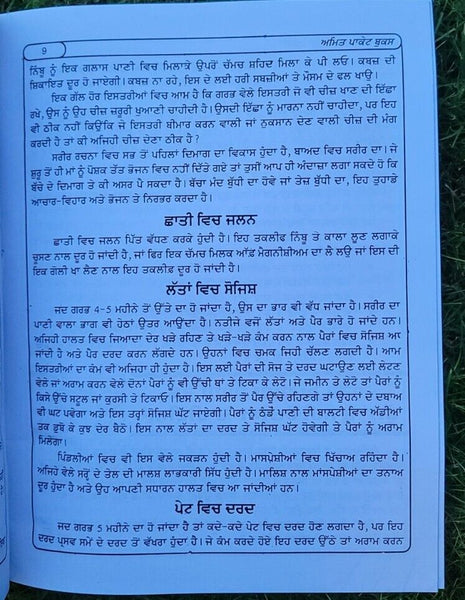 9
ਅਮਿਤ ਪਾਕੇਟ ਬੁਕਸ
ਨਿੰਬੂ ਨੂੰ ਇਕ ਗਲਾਸ ਪਾਣੀ ਵਿਚ ਮਿਲਾਕੇ ਉਪਰੋਂ ਚੱਮਚ ਸ਼ਹਿਦ ਮਿਲਾ ਕੇ ਪੀ ਲਓ। ਕਬਜ਼ ਦੀ
ਸ਼ਿਕਾਇਤ ਦੂਰ ਹੋ ਜਾਏਗੀ। ਕਬਜ਼ ਨਾ ਰਹੇ, ਇਸ ਦੇ ਲਈ ਹਰੀ ਸਬਜ਼ੀਆਂ ਤੇ ਮੌਸਮ ਦੇ ਫਲ ਖਾਉ।
ਇਕ ਗੱਲ ਹੋਰ ਇਸਤਰੀਆਂ ਵਿਚ ਆਮ ਹੈ ਕਿ ਗਰਭ ਵੇਲੇ ਇਸਤਰੀ ਜੋ ਵੀ ਚੀਜ਼ ਖਾਣ ਦੀ ਇੱਛਾ
ਰਖੇ, ਉਸ ਨੂੰ ਉਹ ਚੀਜ਼ ਜ਼ਰੂਰੀ ਖੁਆਣੀ ਚਾਹੀਦੀ ਹੈ। ਉਸਦੀ ਇੱਛਾ ਨੂੰ ਮਾਰਨਾ ਨਹੀਂ ਚਾਹੀਦਾ, ਪਰ ਇਹ
ਵੀ ਠੀਕ ਨਹੀਂ ਕਿਉਂਕਿ ਜੇ ਇਸਤਰੀ ਬੀਮਾਰ ਕਰਨ ਵਾਲੀ ਜਾਂ ਨੁਕਸਾਨ ਦੇਣ ਵਾਲੀ ਚੀਜ਼ ਦੀ ਮੰਗ
ਕਰਦੀ ਹੈ ਤਾਂ ਕੀ ਅਜਿਹੀ ਚੀਜ਼ ਦੇਣਾ ਠੀਕ ਹੈ ?
ਸਰੀਰ ਰਚਨਾ ਵਿਚ ਸਭ ਤੋਂ ਪਹਿਲਾਂ ਦਿਮਾਗ ਦਾ ਵਿਕਾਸ ਹੁੰਦਾ ਹੈ, ਬਾਅਦ ਵਿਚ ਸਰੀਰ ਦਾ। ਜੇ
ਸ਼ੁਰੂ ਤੋਂ ਹੀ ਮਾਂ ਨੂੰ ਪੋਸ਼ਕ ਤੱਤ ਭੋਜਨ ਵਿਚ ਨਹੀਂ ਦਿੱਤੇ ਗਏ ਤਾਂ ਤੁਸੀਂ ਆਪ ਹੀ ਅੰਦਾਜ਼ਾ ਲਗਾ ਸਕਦੇ ਹੋ ਕਿ
ਬੱਚੇ ਦੇ ਦਿਮਾਗ ਤੇ ਕੀ ਅਸਰ ਪੈ ਸਕਦਾ ਹੈ। ਬੱਚਾ ਮੰਦ ਬੁੱਧੀ ਦਾ ਹੋਵੇ ਜਾਂ ਤੇਜ਼ ਬੁੱਧੀ ਦਾ, ਇਹ ਤੁਹਾਡੇ
ਆਚਾਰ-ਵਿਹਾਰ ਅਤੇ ਭੋਜਨ ਤੇ ਨਿਰਭਰ ਕਰਦਾ ਹੈ।
ਛਾਤੀ ਵਿਚ ਜਲਨ
ਛਾਤੀ ਵਿਚ ਜਲਨ ਪਿੱਤ ਵੱਧਣ ਕਰਕੇ ਹੁੰਦੀ ਹੈ। ਇਹ ਤਕਲੀਫ ਨਿੰਬੂ ਤੇ ਕਾਲਾ ਲੂਣ ਲਗਾਕੇ
ਚੂਸਣ ਨਾਲ ਦੂਰ ਹੋ ਜਾਂਦੀ ਹੈ, ਜਾਂ ਫਿਰ ਇਕ ਚੱਮਚ ਮਿਲਕ ਆੱਫ ਮੈਗਨੀਸ਼ੀਅਮ ਦਾ ਲੈ ਲਉ ਜਾਂ ਇਸ ਦੀ
ਇਕ ਗੋਲੀ ਖਾ ਲੈਣ ਨਾਲ ਇਹ ਤਕਲੀਫ਼ ਦੂਰ ਹੋ ਜਾਂਦੀ ਹੈ।
ਲੱਤਾਂ ਵਿਚ ਸੋਜਿਸ਼
ਜਦ ਗਰਭ 4-5 ਮਹੀਨੇ ਤੋਂ ਉੱਤੇ ਦਾ ਹੋ ਜਾਂਦਾ ਹੈ, ਉਸ ਦਾ ਭਾਰ ਵੀ ਵੱਧ ਜਾਂਦਾ ਹੈ। ਸਰੀਰ ਦਾ
ਪਾਣੀ ਵਾਲਾ ਭਾਗ ਵੀ ਹੇਠਾਂ ਉਤਰ ਆਉਂਦਾ ਹੈ। ਨਤੀਜੇ ਵਜੋਂ ਲੱਤਾਂ ਅਤੇ ਪੈਰ ਭਾਰੇ ਹੋ ਜਾਂਦੇ ਹਨ।
ਅਜਿਹੀ ਹਾਲਤ ਵਿਚ ਜਿਆਦਾ ਦੇਰ ਖੜੇ ਰਹਿਣ ਤੇ ਖੜੇ-ਖੜੇ ਕੰਮ ਕਰਨ ਨਾਲ ਪੈਰਾਂ ਵਿਚ ਸੋਜਿਸ਼ ਆ
ਜਾਂਦੀ ਹੈ ਅਤੇ ਪੈਰ ਦਰਦ ਕਰਨ ਲੱਗਦੇ ਹਨ। ਉਹਨਾਂ ਵਿਚ ਚਮਕ ਜਿਹੀ ਚੱਲਣ ਲਗਦੀ ਹੈ। ਆਮ
ਇਸਤਰੀਆਂ ਦਾ ਕੰਮ ਵੀ ਅਜਿਹਾ ਹੀ ਹੁੰਦਾ ਹੈ। ਇਸ ਲਈ ਪੈਰਾਂ ਦੀ ਸੋਜ ਤੇ ਦਰਦ ਘਟਾਉਣ ਲਈ ਲੇਟਣ
ਵੇਲੇ ਜਾਂ ਅਰਾਮ ਕਰਨ ਵੇਲੇ ਦੋਨਾਂ ਪੈਰਾਂ ਨੂੰ ਵੀ ਉੱਚੀ ਥਾਂ ਤੇ ਟਿਕਾ ਕੇ ਲੇਟੋ। ਜੇ ਜ਼ਮੀਨ ਤੇ ਲੇਟੋ ਤਾਂ ਪੈਰਾਂ ਨੂੰ
ਕਿਸੇ ਉੱਚੇ ਸਟੂਲ ਜਾਂ ਕੁਰਸੀ ਤੇ ਟਿਕਾਓ। ਇਸ ਨਾਲ ਸਰੀਰ ਤੋਂ ਪੈਰ ਉੱਚੇ ਰਹਿਣਗੇ ਤਾਂ ਉਹਨਾਂ ਦੇ ਦਬਾਅ
ਵੀ ਘਟ ਪਵੇਗਾ ਅਤੇ ਇਸ ਤਰ੍ਹਾਂ ਸੋਜਿਸ਼ ਘੱਟ ਜਾਏਗੀ। ਪੈਰਾਂ ਨੂੰ ਠੰਡੇ ਪਾਣੀ ਦੀ ਬਾਲਟੀ ਵਿਚ ਅੱਡੀਆਂ
ਤਕ ਡੁਬੋ ਕੇ ਕੁਝ ਦੇਰ ਬੈਠੋ। ਇਸ ਨਾਲ ਲੱਤਾਂ ਦਾ ਦਰਦ ਤੇ ਸੋਜਿਸ਼ ਘੱਟ ਹੋਵੇਗੀ ਤੇ ਪੈਰਾਂ ਨੂੰ ਅਰਾਮ
ਮਿਲੇਗਾ।
ਪਿੰਡਲੀਆਂ ਵਿਚ ਵੀ ਇਸ ਵੇਲੇ ਜਕੜਨ ਹੁੰਦੀ ਹੈ। ਮਾਸਪੇਸ਼ੀਆਂ ਵਿਚ ਖਿੱਚਾਅ ਰਹਿੰਦਾ ਹੈ।
ਅਜਿਹੇ ਵੇਲੇ ਸਰ੍ਹੋਂ ਦੇ ਤੇਲ ਦੀ ਮਾਲਸ਼ ਲਾਭਕਾਰੀ ਸਿੱਧ ਹੁੰਦੀ ਹੈ। ਮਾਲਿਸ਼ ਨਾਲ ਮਾਂਸਪੇਸ਼ੀਆਂ ਦਾ ਤਨਾਅ
ਦੂਰ ਹੁੰਦਾ ਹੈ ਅਤੇ ਉਹ ਆਪਣੀ ਸਧਾਰਨ ਹਾਲਤ ਵਿਚ ਆ ਜਾਂਦੀਆਂ ਹਨ।
ਪੇਟ ਵਿਚ ਦਰਦ
ਜਦ ਗਰਭ 5 ਮਹੀਨੇ ਦਾ ਹੋ ਜਾਂਦਾ ਹੈ ਤਾਂ ਕਦੇ-ਕਦੇ ਪੇਟ ਵਿਚ ਦਰਦ ਹੋਣ ਲਗਦਾ ਹੈ, ਪਰ ਇਹ
ਦਰਦ ਪ੍ਰਸਵ ਸਮੇਂ ਦੇ ਦਰਦ ਤੋਂ ਵੱਖਰਾ ਹੁੰਦਾ ਹੈ। ਜੇ ਕੰਮ ਕਰਦੇ ਹੋਏ ਇਹ ਦਰਦ ਉੱਠੇ ਤਾਂ ਅਰਾਮ ਕਰਨ